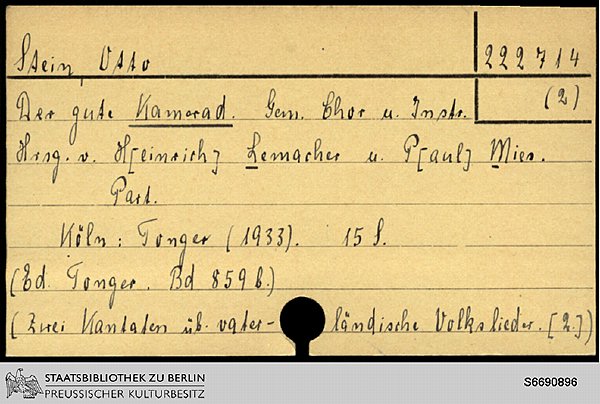 Stein, Otto
222714
(2)
Der gute Kamerad. Gem. Chor u. Instr.
Hrsg. v. H[einrich] Lemacher u. P[aul] Mies.
Part.
Köln: Tonger (1933). 15 S.
(Ed. Tonger. Bd 859b.)
(Zwei Kantaten üb. vaterländische Volkslieder. [2.])
STAATSBIBLIOTHEK ZU BERLIN
PREUSSISCHER KULTURBESITZ
S6690896